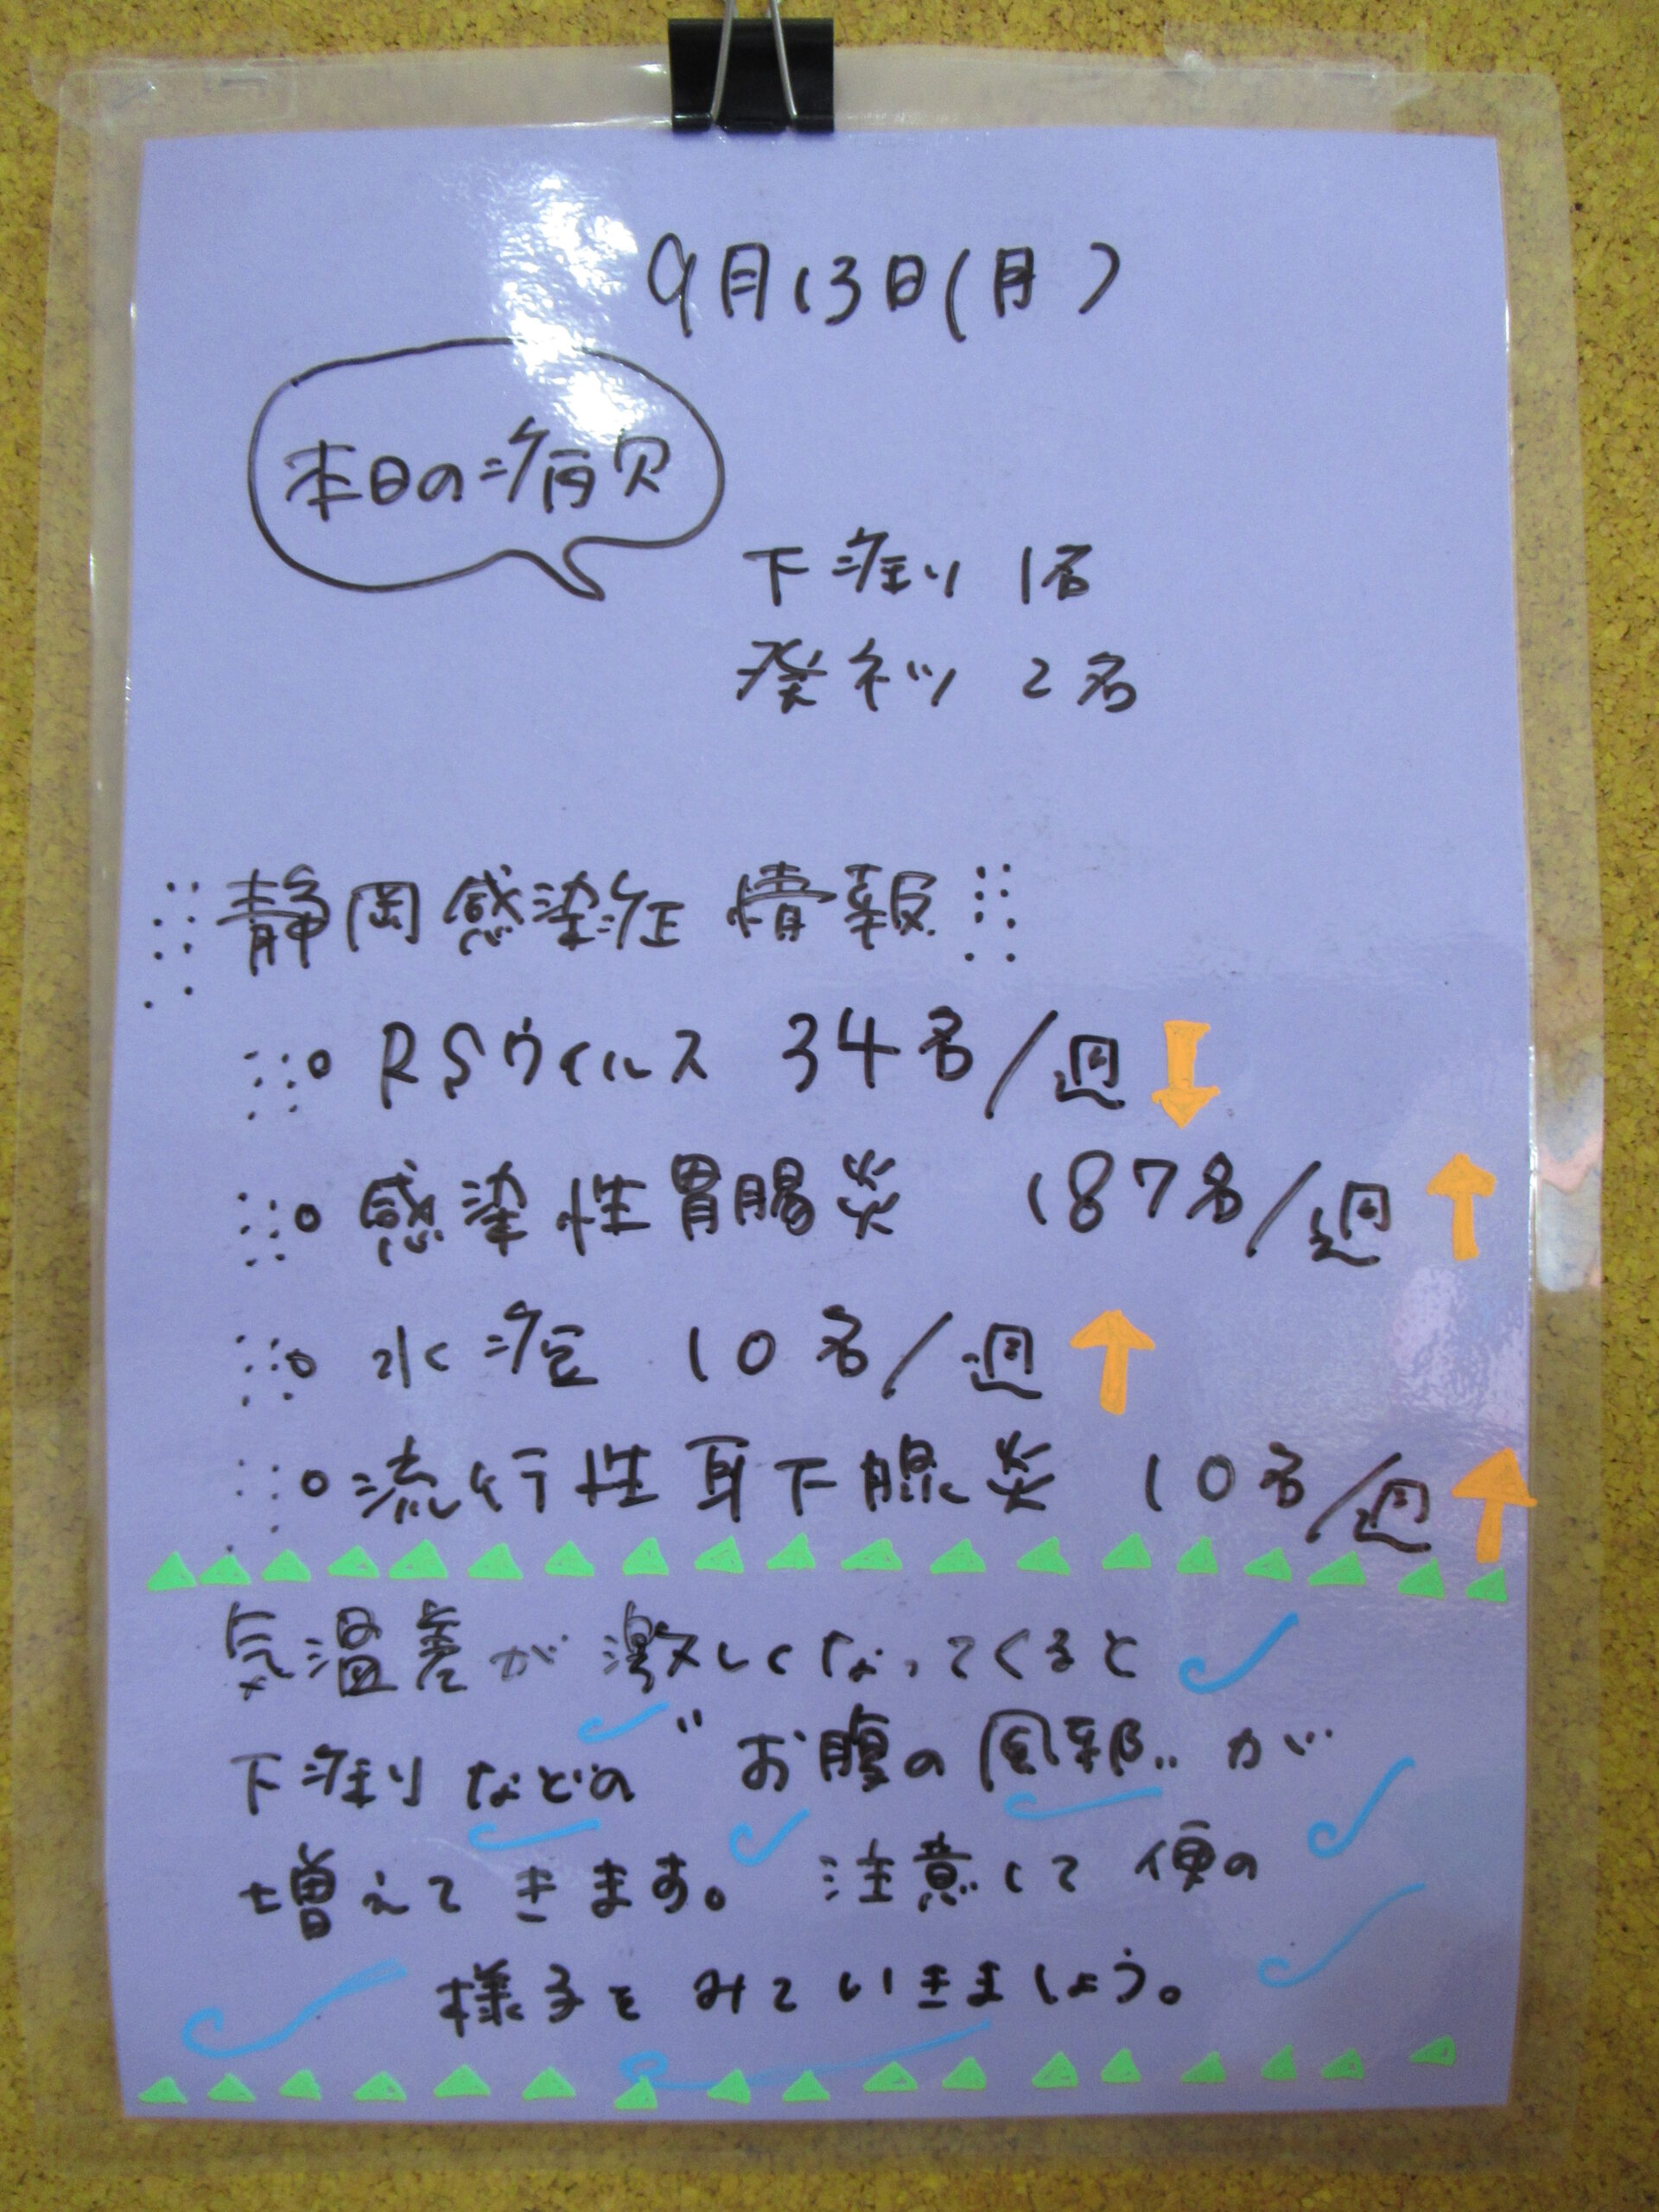 9月13日(月)
本日の病欠
下痢り 1名
発ネツ 2名
静岡感染症 情報
RSウイルス 34名/週 ↓
感染性胃腸炎 187名/週 ↑
水痘 10名/週 ↑
流行性耳下腺炎 10名/週 ↑
気温差が激しくなってくると
下痢りなどの〝お腹の風邪〟が
増えてきます。 注意して便の
様子をみていきましょう。